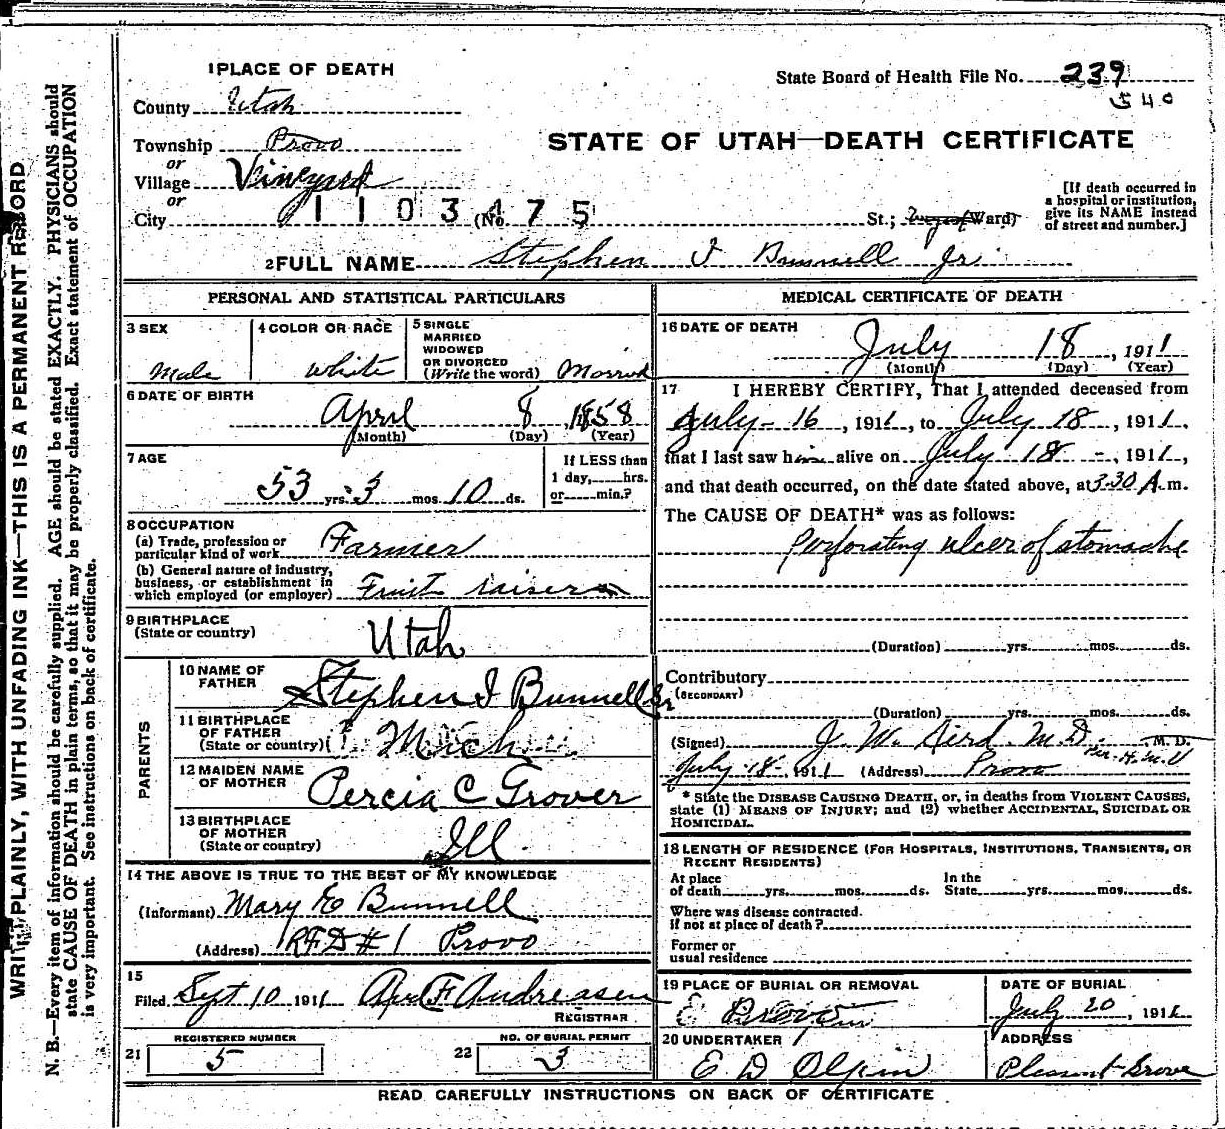 1 PLACE OF DEATH
State Board of Health File No. 239
540
County Utah
STATE OF UTAH—DEATH CERTIFICATE
Township Provo
or
Village Vineyard
or
City
1103475
(No. St.; Ward)
[If death occurred in
a hospital or institution,
give its NAME instead
of street and number.]
2 FULL NAME Stephen I Bunnell Jr.
PERSONAL AND STATISTICAL PARTICULARS
3 SEX
Male
4 COLOR OR RACE
White
5 SINGLE
MARRIED
WIDOWED
OR DIVORCED
(Write the word) Married
6 DATE OF BIRTH
April 8, 1858
(Month) (Day) (Year)
7 AGE
53 yrs. 3 mos. 10 ds.
If LESS than
1 day, hrs.
or min.?
8 OCCUPATION
(a) Trade, profession or
particular kind of work Farmer
(b) General nature of industry,
business, or establishment in
which employed (or employer) Fruit raiser
9 BIRTHPLACE
(State or country) Utah
PARENTS
10 NAME OF
FATHER Stephen I Bunnell Sr
11 BIRTHPLACE
OF FATHER
(State or country) Mich
12 MAIDEN NAME
OF MOTHER Percia C Grover
13 BIRTHPLACE
OF MOTHER
(State or country) Ill
14 THE ABOVE IS TRUE TO THE BEST OF MY KNOWLEDGE
(Informant) Mary E Bunnell
(Address) RFD # 1 Provo
15
Filed Sept 10 1911 F Andreasen
REGISTRAR
REGISTERED NUMBER
21 5
NO. OF BURIAL PERMIT
22 3
MEDICAL CERTIFICATE OF DEATH
16 DATE OF DEATH
July 18, 1911
(Month) (Day) (Year)
17 I HEREBY CERTIFY, That I attended deceased from
July 16, 1911, to July 18, 1911,
that I last saw him alive on July 18, 1911,
and that death occurred, on the date stated above, at 3-30 A.m.
The CAUSE OF DEATH* was as follows:
perforating ulcer of stomache
(Duration) yrs. mos. ds.
Contributory
(SECONDARY)
(Duration) yrs. mos. ds.
(Signed) J. W. Aird. M.D. M. D.
Per. H.M.V
July 18 1911 (Address) Provo
* State the DISEASE CAUSING DEATH, or, in deaths from VIOLENT CAUSES,
state (1) MEANS OF INJURY; and (2) whether ACCIDENTAL, SUICIDAL OR
HOMICIDAL.
18 LENGTH OF RESIDENCE (FOR HOSPITALS, INSTITUTIONS, TRANSIENTS, OR
RECENT RESIDENTS)
At place In the
of death yrs. mos. ds. State yrs. mos. ds.
Where was disease contracted.
if not at place of death?
Former or
usual residence
19 PLACE OF BURIAL OR REMOVAL
DATE OF BURIAL
July 20, 1911
20 UNDERTAKER
E D Olpin
ADDRESS
Pleasant Grove
READ CAREFULLY INSTRUCTIONS ON BACK OF CERTIFICATE
WRITE PLAINLY, WITH UNFADING INK—THIS IS A PERMANENT RECORD
N. B.—Every item of information should be carefully supplied. AGE should be stated EXACTLY. PHYSICIANS should
state CAUSE OF DEATH in plain terms, so that it may be properly classified. Exact statement of OCCUPATION
is very important. See instructions on back of certificate.